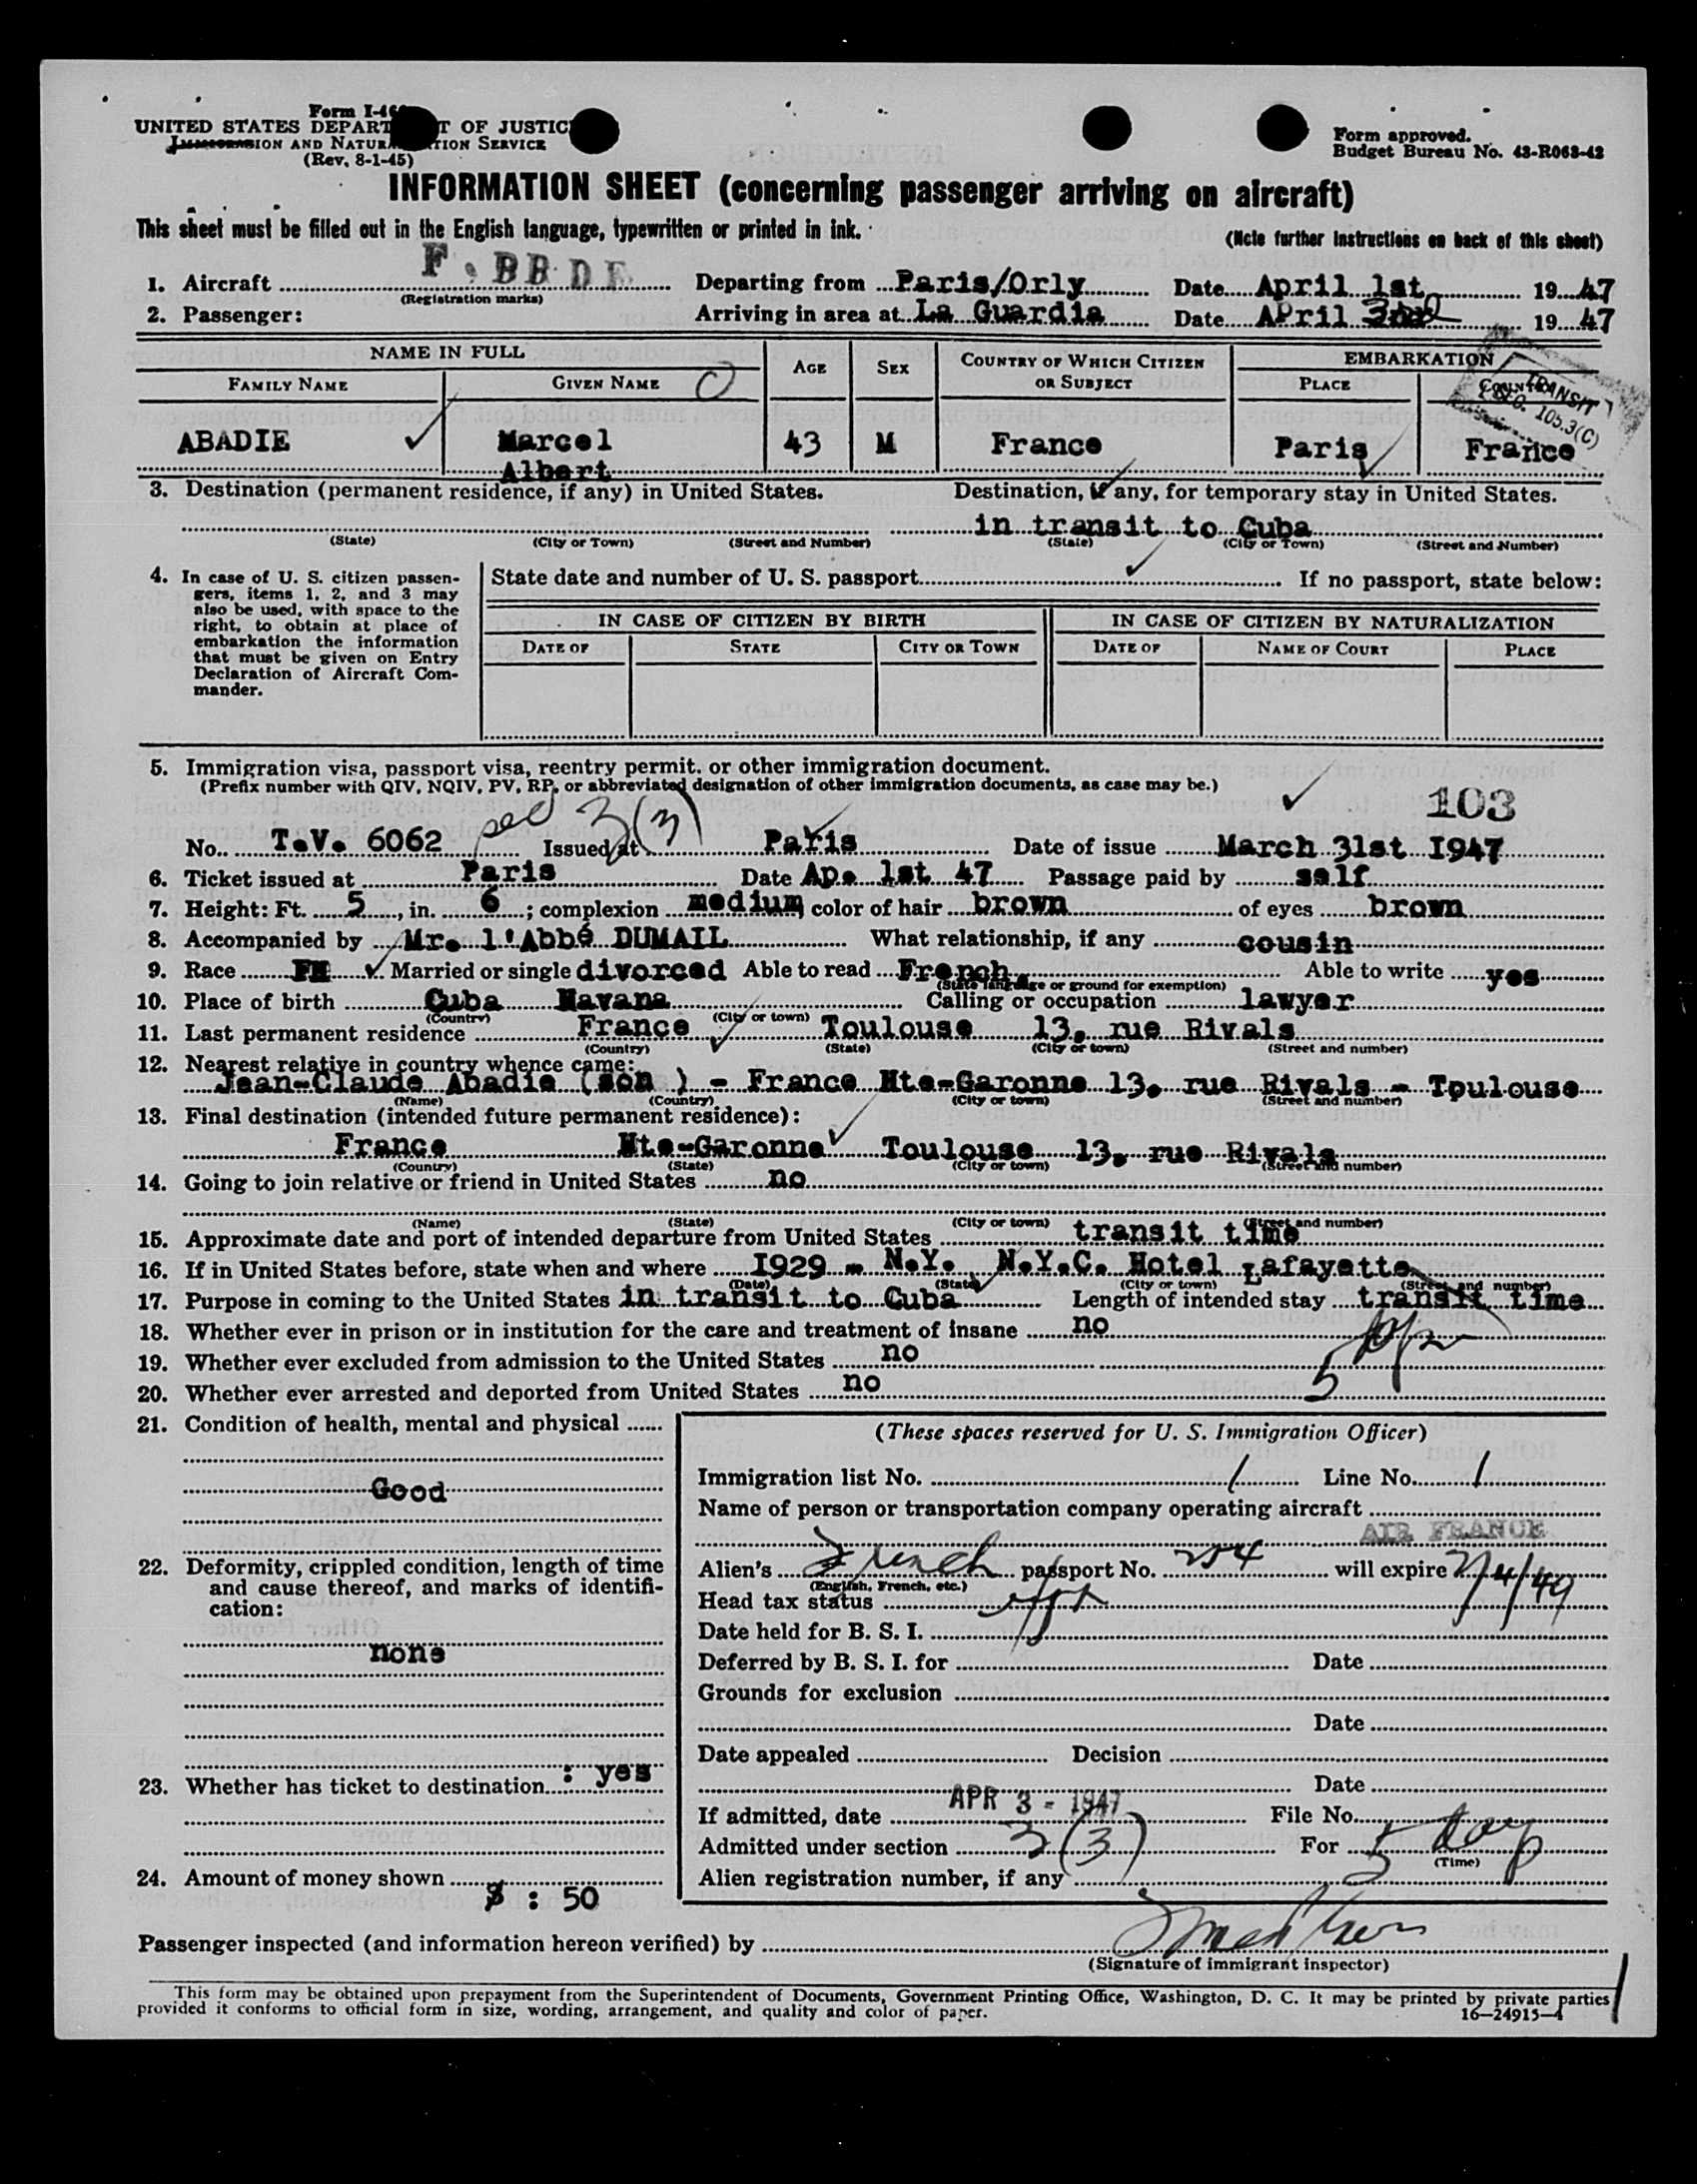 Form I-46
UNITED STATES DEPART T OF JUSTIC
IMMIGRATION AND NATUR TION SERVICE
(Rev. 8-1-45)
Form approved.
Budget Bureau No. 43-R063-42
INFORMATION SHEET (concerning passenger arriving on aircraft)
This sheet must be filled out in the English language, typewritten or printed in ink.
(Note further instructions on back of this sheet)
1. Aircraft F.BBDE Departing from Paris/Orly Date April 1st 1947
(Registration marks)
2. Passenger: Arriving in area at La Guardia Date APril 3rd 1947
NAME IN FULL AGE SEX COUNTRY OF WHICH CITIZEN OR SUBJECT EMBARKATION
FAMILY NAME GIVEN NAME PLACE COUNTRY
TRANSIT
SEC. 105.3(C)
ABADIE Marcel 43 M France Paris France
Albert
3. Destination (permanent residence, if any) in United States. Destination, if any, for temporary stay in United States.
in transit to Cuba
(State) (City or Town) (Street and Number) (State) (City or Town) (Street and Number)
4. In case of U. S. citizen passen-
gers, items 1, 2, and 3 may
also be used, with space to the
right, to obtain at place of
embarkation the information
that must be given on Entry
Declaration of Aircraft Com-
mander.
State date and number of U. S. passport If no passport, state below:
IN CASE OF CITIZEN BY BIRTH IN CASE OF CITIZEN BY NATURALIZATION
DATE OF STATE CITY OR TOWN DATE OF NAME OF COURT PLACE
5. Immigration visa, passport visa, reentry permit. or other immigration document.
(Prefix number with QIV, NQIV, PV, RP, or abbreviated designation of other immigration documents, as case may be.)
103
No. T.V. 6062 sec 3(3) Issued at Paris Date of issue March 31st I947
6. Ticket issued at Paris Date Ap. 1st 47 Passage paid by self
7. Height: Ft. 5, in. 6; complexion medium color of hair brown of eyes brown
8. Accompanied by Mr. l'Abbé DUMAIL What relationship, if any cousin
9. Race FR Married or single divorced Able to read French Able to write yes
(State language or ground for exemption)
10. Place of birth Cuba Havana Calling or occupation lawyer
(Country) (City or town)
11. Last permanent residence France Toulouse 13, rue Rivals
(Country) (State) (City or town) (Street and number)
12. Nearest relative in country whence came:
Jean-Claude Abadie (son ) - France Hte-Garonne 13, rue Rivals - Toulouse
(Name) (Country) (City or town) (Street and number)
13. Final destination (intended future permanent residence):
France Hte-Garonne Toulouse 13, rue Rivals
(Country) (State) (City or town) (Street and number)
14. Going to join relative or friend in United States no
(Name) (State) (City or town) (Street and number)
15. Approximate date and port of intended departure from United States transit time
16. If in United States before, state when and where I929 - N.Y. N.Y.C. Hotel Lafayette
(Date) (State) (City or town) (Street and number)
17. Purpose in coming to the United States in transit to Cuba Length of intended stay transit time
18. Whether ever in prison or in institution for the care and treatment of insane no
19. Whether ever excluded from admission to the United States no
5
20. Whether ever arrested and deported from United States no
21. Condition of health, mental and physical
Good
22. Deformity, crippled condition, length of time
and cause thereof, and marks of identifi-
cation:
none
23. Whether has ticket to destination : yes
24. Amount of money shown
$ : 50
(These spaces reserved for U. S. Immigration Officer)
Immigration list No. 1 Line No. 1
Name of person or transportation company operating aircraft
AIR FRANCE
Alien's French passport No. 254 will expire 2/4/49
(English, French, etc.)
Head tax status
Date held for B. S. I.
Deferred by B. S. I. for Date
Grounds for exclusion
Date
Date appealed Decision
Date
If admitted, date APR 3 - 1947 File No.
Admitted under section 3(3) For 5 days
(Time)
Alien registration number, if any
Passenger inspected (and information hereon verified) by
(Signature of immigrant inspector)
This form may be obtained upon prepayment from the Superintendent of Documents, Government Printing Office, Washington, D. C. It may be printed by private parties
provided it conforms to official form in size, wording, arrangement, and quality and color of paper.
16—24915-4